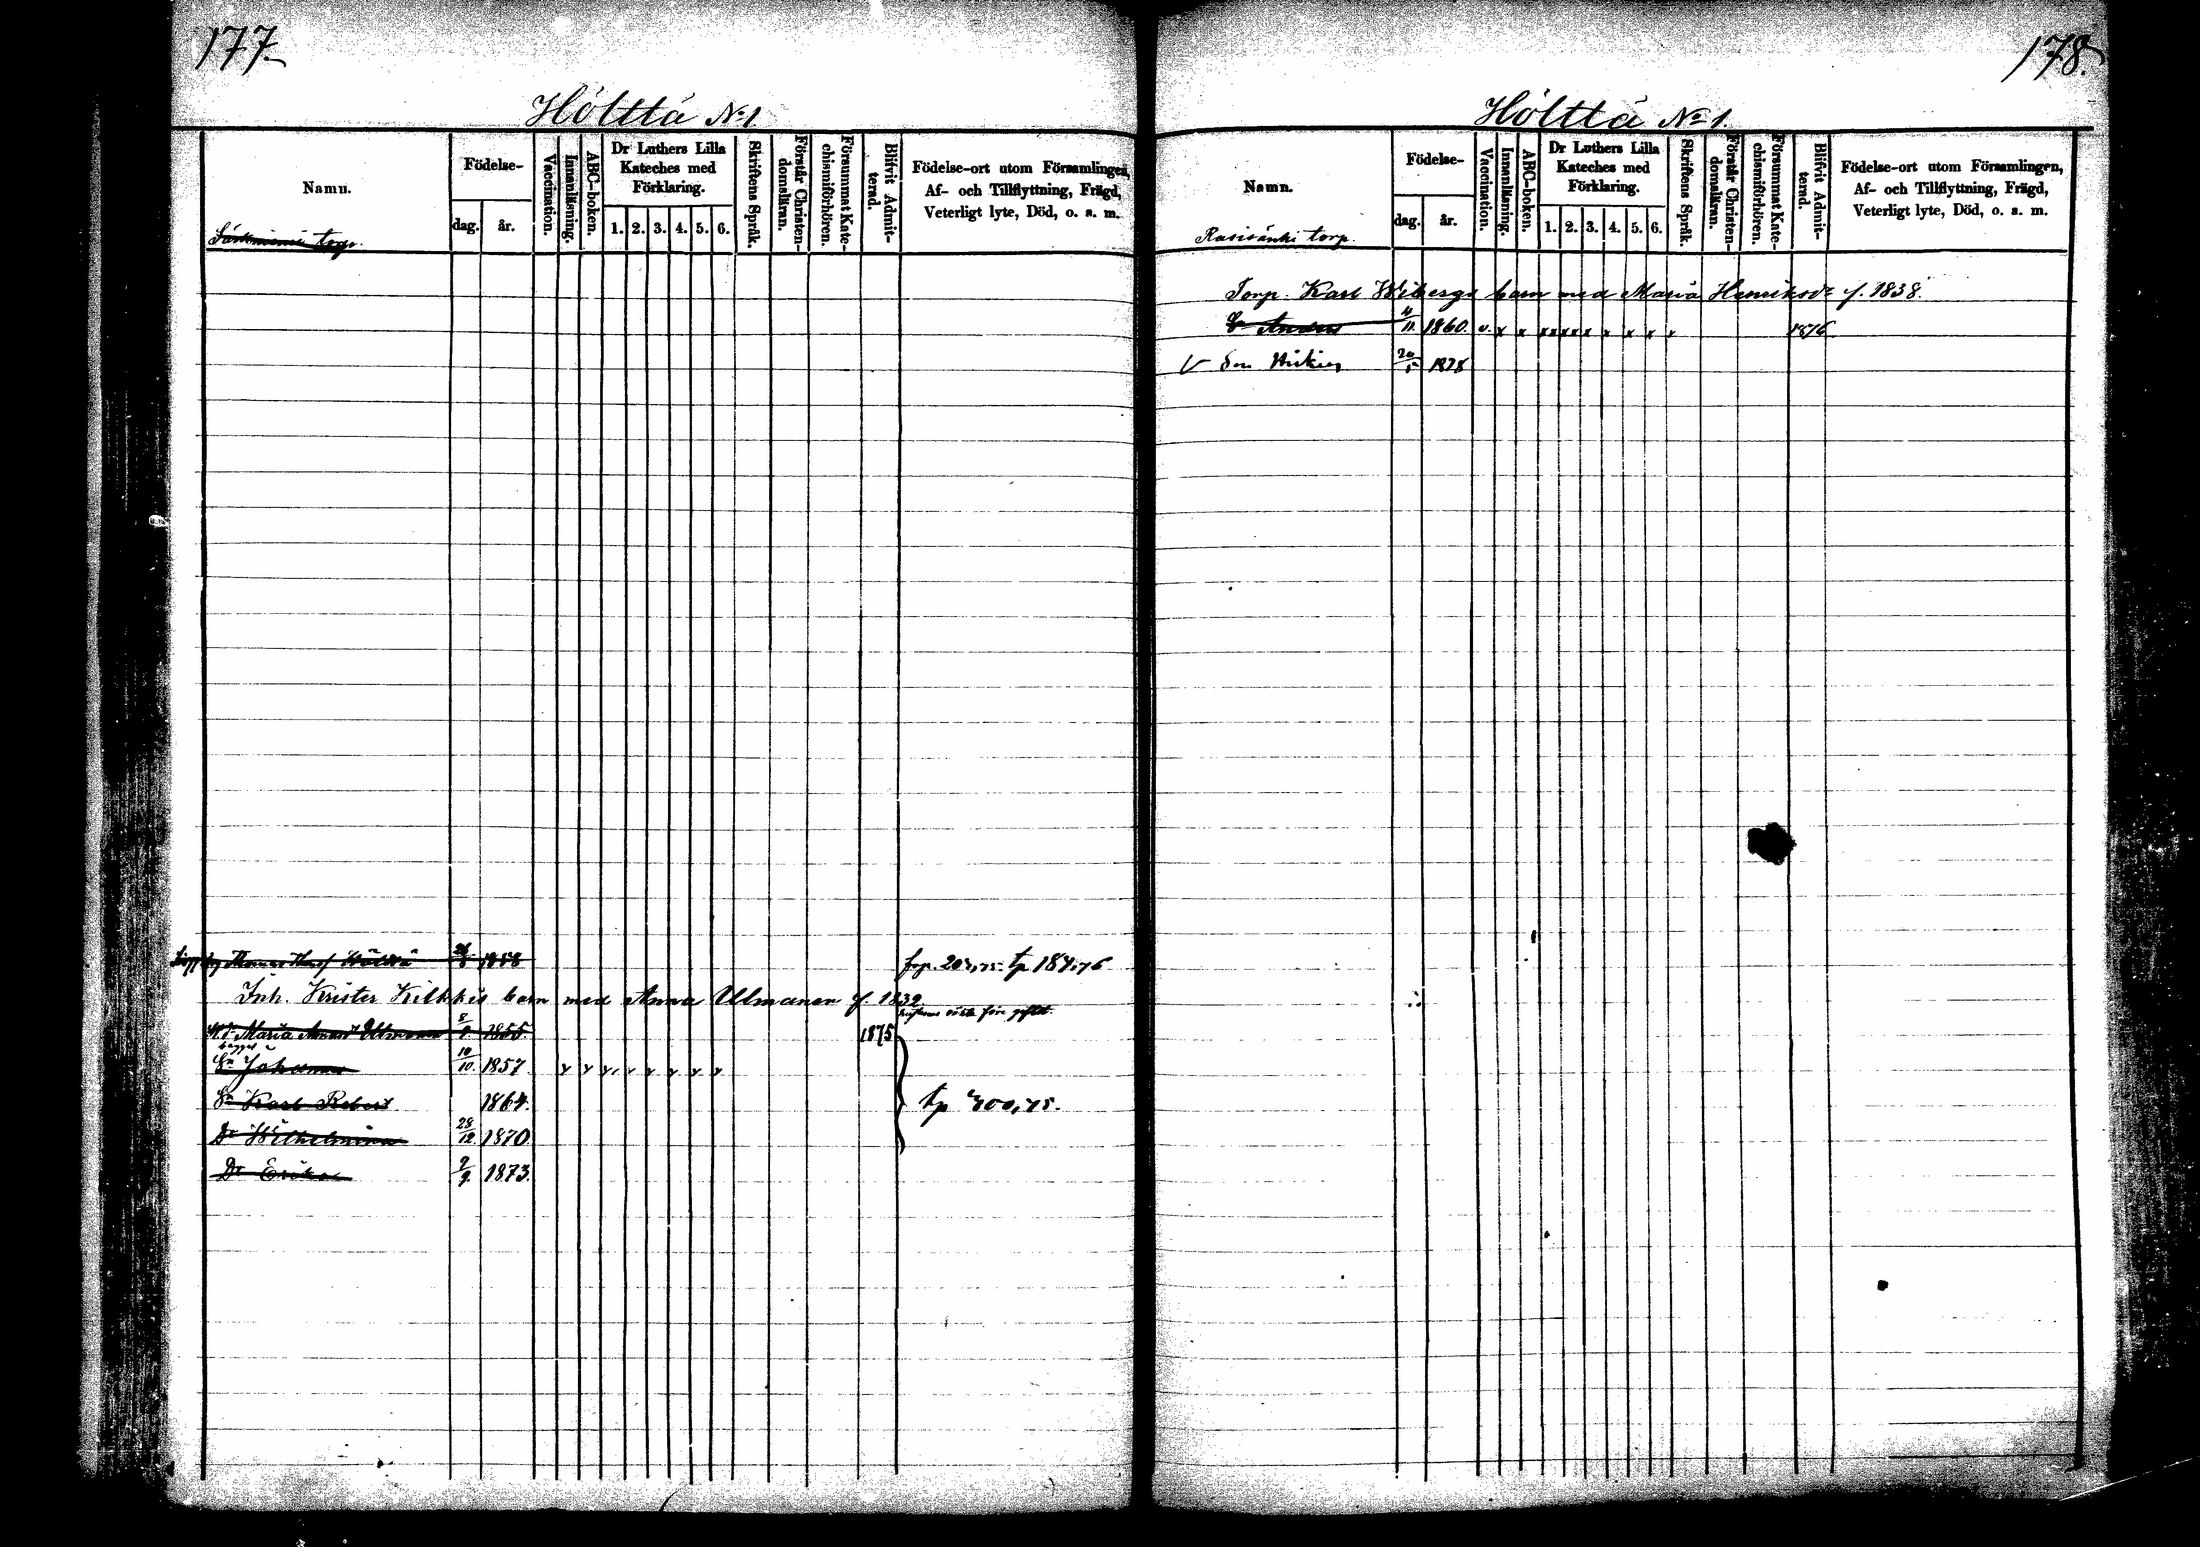 177.
Hölttä No 1
Namn.
Födelse-
dag.
år.
Vaccination.
Innanläsning.
ABC-boken.
Dr Luthers Lilla Kateches med Förklaring.
1. 2. 3. 4. 5. 6.
Skriftens Språk.
Förstår Christen-domsläran.
Försummat Kate-chismiförhören.
Blifvit Admit-terad.
Födelse-ort utom Församlingen,
Af- och Tillflyttning, Frägd,
Veterligt lyte, Död, o. s. m.
torp.
1858 tp 184,76
Inh. Krister Kilkkis barn med Anna Ulmanen f. 1832.
Maria Ulmanen 8/8 1855. 1875
Sn Johannes 10/10. 1857. v v v v v v v v
Sn Karl Robert 1864. tp 400,75.
Dr Wilhelmina 28/12 1870
Dr Erika 9/9. 1873.
178.
Hölttä No 1.
Namn.
Födelse-
dag.
år.
Vaccination.
Innanläsning.
ABC-boken.
Dr Luthers Lilla Kateches med Förklaring.
1. 2. 3. 4. 5. 6.
Skriftens Språk.
Förstår Christen-domsläran.
Försummat Kate-chismiförhören.
Blifvit Admit-terad.
Födelse-ort utom Församlingen,
Af- och Tillflyttning, Frägd,
Veterligt lyte, Död, o. s. m.
torp.
Torp. Karl Wibergs barn med Maria Henriksdr f. 1838.
Anders 4/11 1860. v. x x xxxxx x x x x 1876.
V Son 20/5 1878